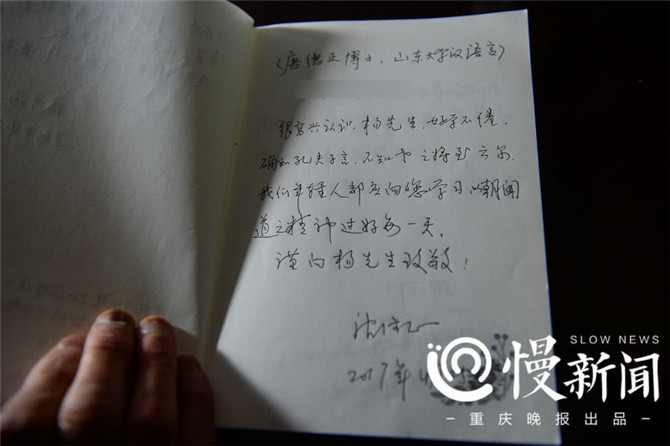 （唐德正博士，山东大学汉语言）
很高兴认识杨先生，好学不倦，
确如孔夫子言，不知老之将至云尔。
我们年轻人都应向您学习，以朝闻
道之精神过好每一天。
谨向杨先生致敬！
2017年4
SLOW NEWS
慢新闻
-重庆晚报出品-